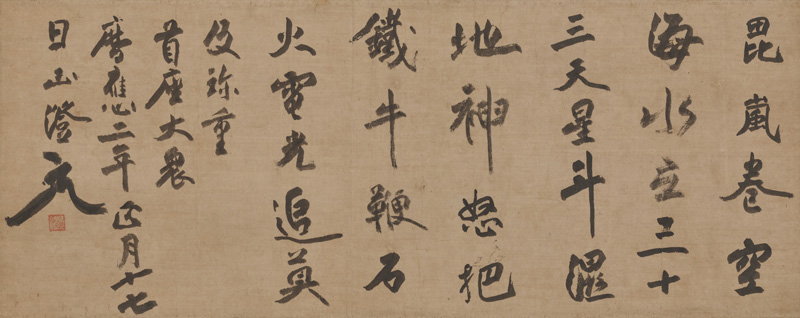 毘嵐巻空
海水立三十
三天星斗濕
地神怒把
鐵牛鞭石
火電光追莫
及珎重
首座大衆
暦應二年正月十七
日 玉澄